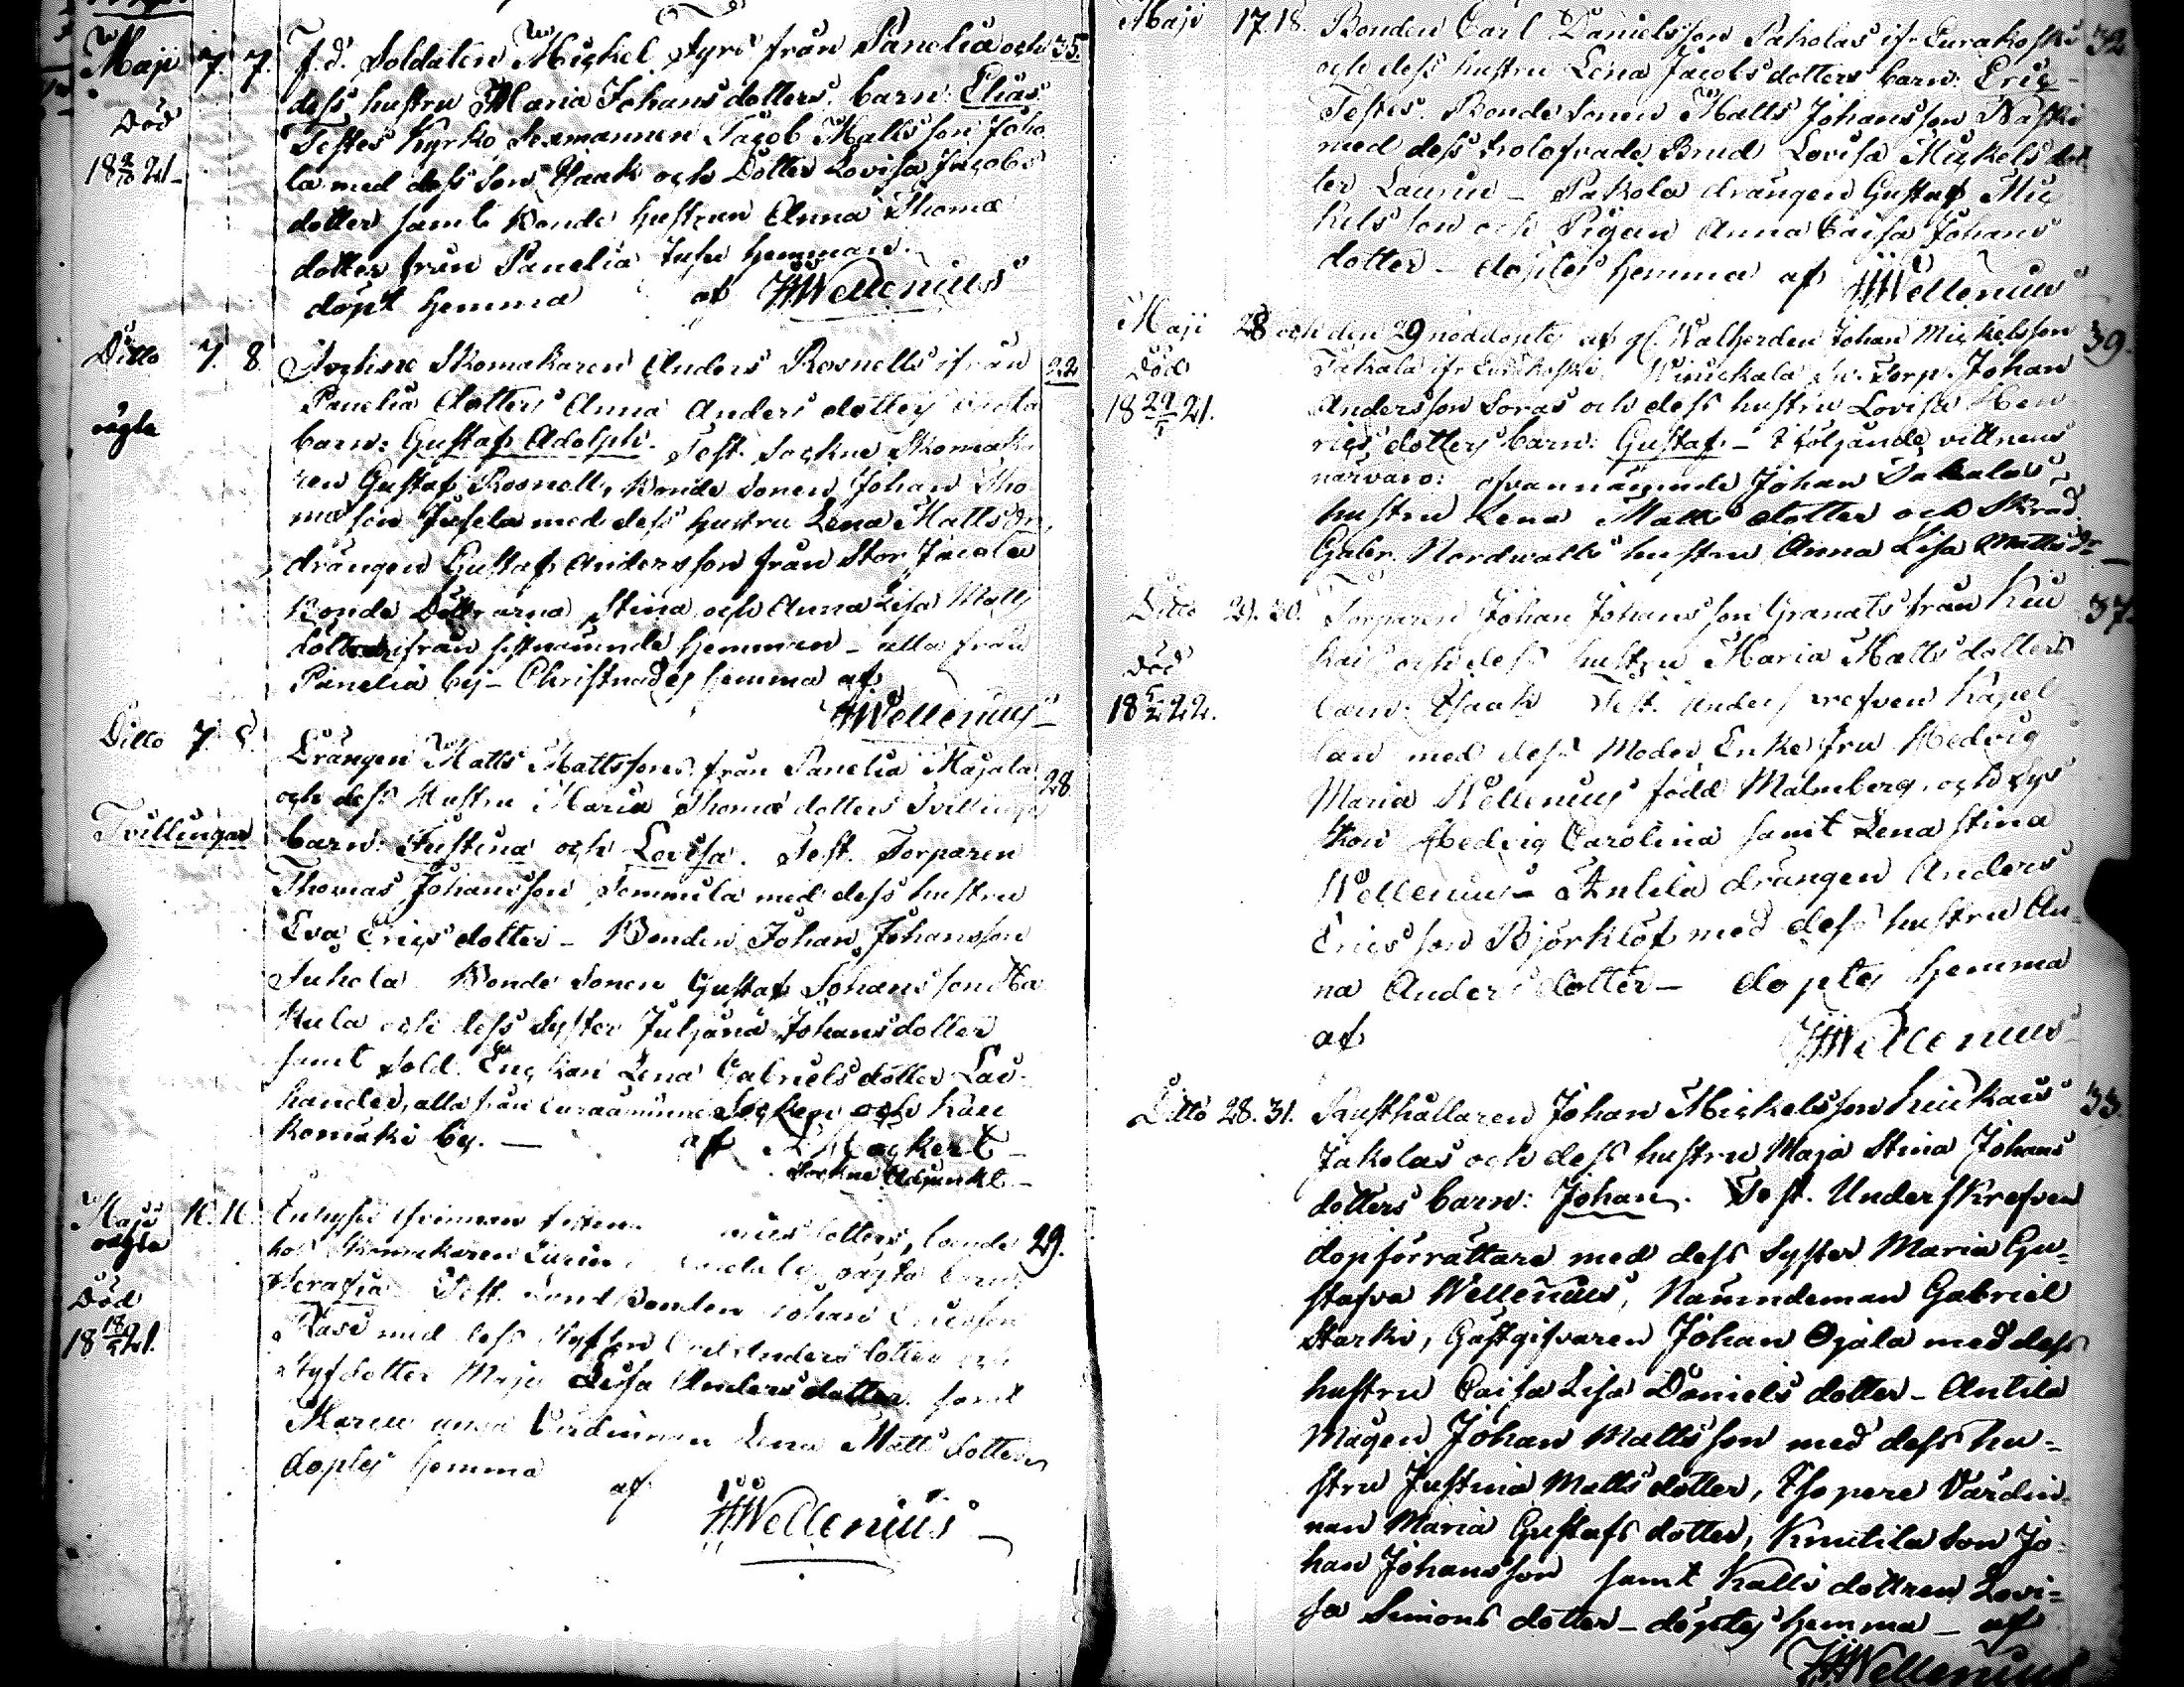 Maji 7. 7. f. d. Soldaten Mickel Fyrs från Panelia och 35.
dess hustru Maria Johansdotters barn: Elias
Död Testes Kyrko Sexmannen Jacob Mattsson Joho
18 2/10 21 la med dess son Isaak och Dotter Lovisa Jacobs
dotter samt Bonde hustrun Anna Thomæ
dotter från Panelia hemman.
döpt hemma af HWellenius
Ditto 7. 8. Skomakaren Anders Rosnells ifrån 22
Panelia dotters Anna Anders dotters oägta
oägta barn: Gustaf Adolph. Test. Sockne Skomaka
ren Gustaf Rosnell, Bonde Sonen Johan Tho
mæson Jusela med dess hustru Lena Mattsdr,
drängen Gustaf Andersson från Stor Jacola
Bonde Döttrarna Stina och Anna Lisa Matts
döttrar ifrån sistnämnde hemman - alla från
Panelia by - Christnades hemma af
HWellenius
Ditto 7. 8. Drängen Matts Mattssons från Panelia Majala 28.
och dess Hustru Maria Thomæ dotters Tvillinge
Tvillingar barn: Justina och Lovisa. Test. Torparen
Thomas Johansson Sommila med dess hustru
Eva Erics dotter - Bonden Johan Johansson
Juhola Bonde Sonen Gustaf Johansson Ha
kula och dess Syster Juljana Johansdotter
samt Sold. Enckan Lena Gabrielsdotter Lau
kander, alla från Euraåminne Socken och Kau
komäki by. af Mackert
Sockne Adjunkt
Maji 10. 10. dotters, boende 29.
oägta hos Skomakaren oägta barn:
Serafia Test. Bonden Johan Ericsson
Död Rasi med dess Anders dotter och
18 18/5 21. Styfdotter Maja Lisa Anders dotter samt
Wärdinnan Lena Matts dotter
döptes hemma af
HWellenius
Maji 17. 18. Bonden Carl Danielsson Pakolas ifr Eurakoski 32
och dess hustru Lena Jacobsdotters barn: Eric
Testes. Bonde Sonen Matts Johansson Naski
med dess trolofvade Brud Lovisa Mickels dot
ter Lauru - Pakola drängen Gustaf Mic
kelsson och Pigan Anna Caisa Johans
dotter - döptes hemma af HWellenius
Maji 28 och den 29 nöddöptes af gl. Johan Mickelsson 39.
Död Torp. Johan
18 29/5 21. Andersson Soras och dess hustru Lovisa Hen
rics dotters barn: Gustaf - i följande vittnens
närvaro: ofvannämnde Johan
hustru Lena Matts dotter och Skräd
Gabr. Nordwalls hustru Anna Lisa Mattsdr
Ditto 29. 30. Torparen Johan Johansson Granats från Kiu 37.
kais och dess hustru Maria Matts dotters
Död barn: Isaak Test. Underskrefven Kapel
18 5/2 22. lan med dess Moder Enke fru Hedvig
Maria Wellenius född Malmberg, och Sys
kon Hedvig Carolina samt Lena Stina
Wellenius - Antila drängen Anders
Ericsson Björklöf med dess hustru An
na Anders dotter - döptes hemma
af HWellenius
Ditto 28. 31. Rusthållaren Johan Mickelsson Kiukais 33.
Jakolas och dess hustru Maja Stina Johans
dotters barn: Johan. Test. Underskrefven
dopförrättare med dess Syster Maria Gu=
stafva Wellenius, Nämndeman Gabriel
Starki, Gästgifvaren Johan Ojala med dess
hustru Caisa Lisa Daniels dotter - Antila
Mågen Johan Mattsson med dess hu=
stru Justina Matts dotter, Isopere Värdin=
nan Maria Gustafs dotter, Knutila Son Jo=
han Johansson samt Kalli dottren Lovi=
sa Simons dotter - döptes hemma - af
HWellenius